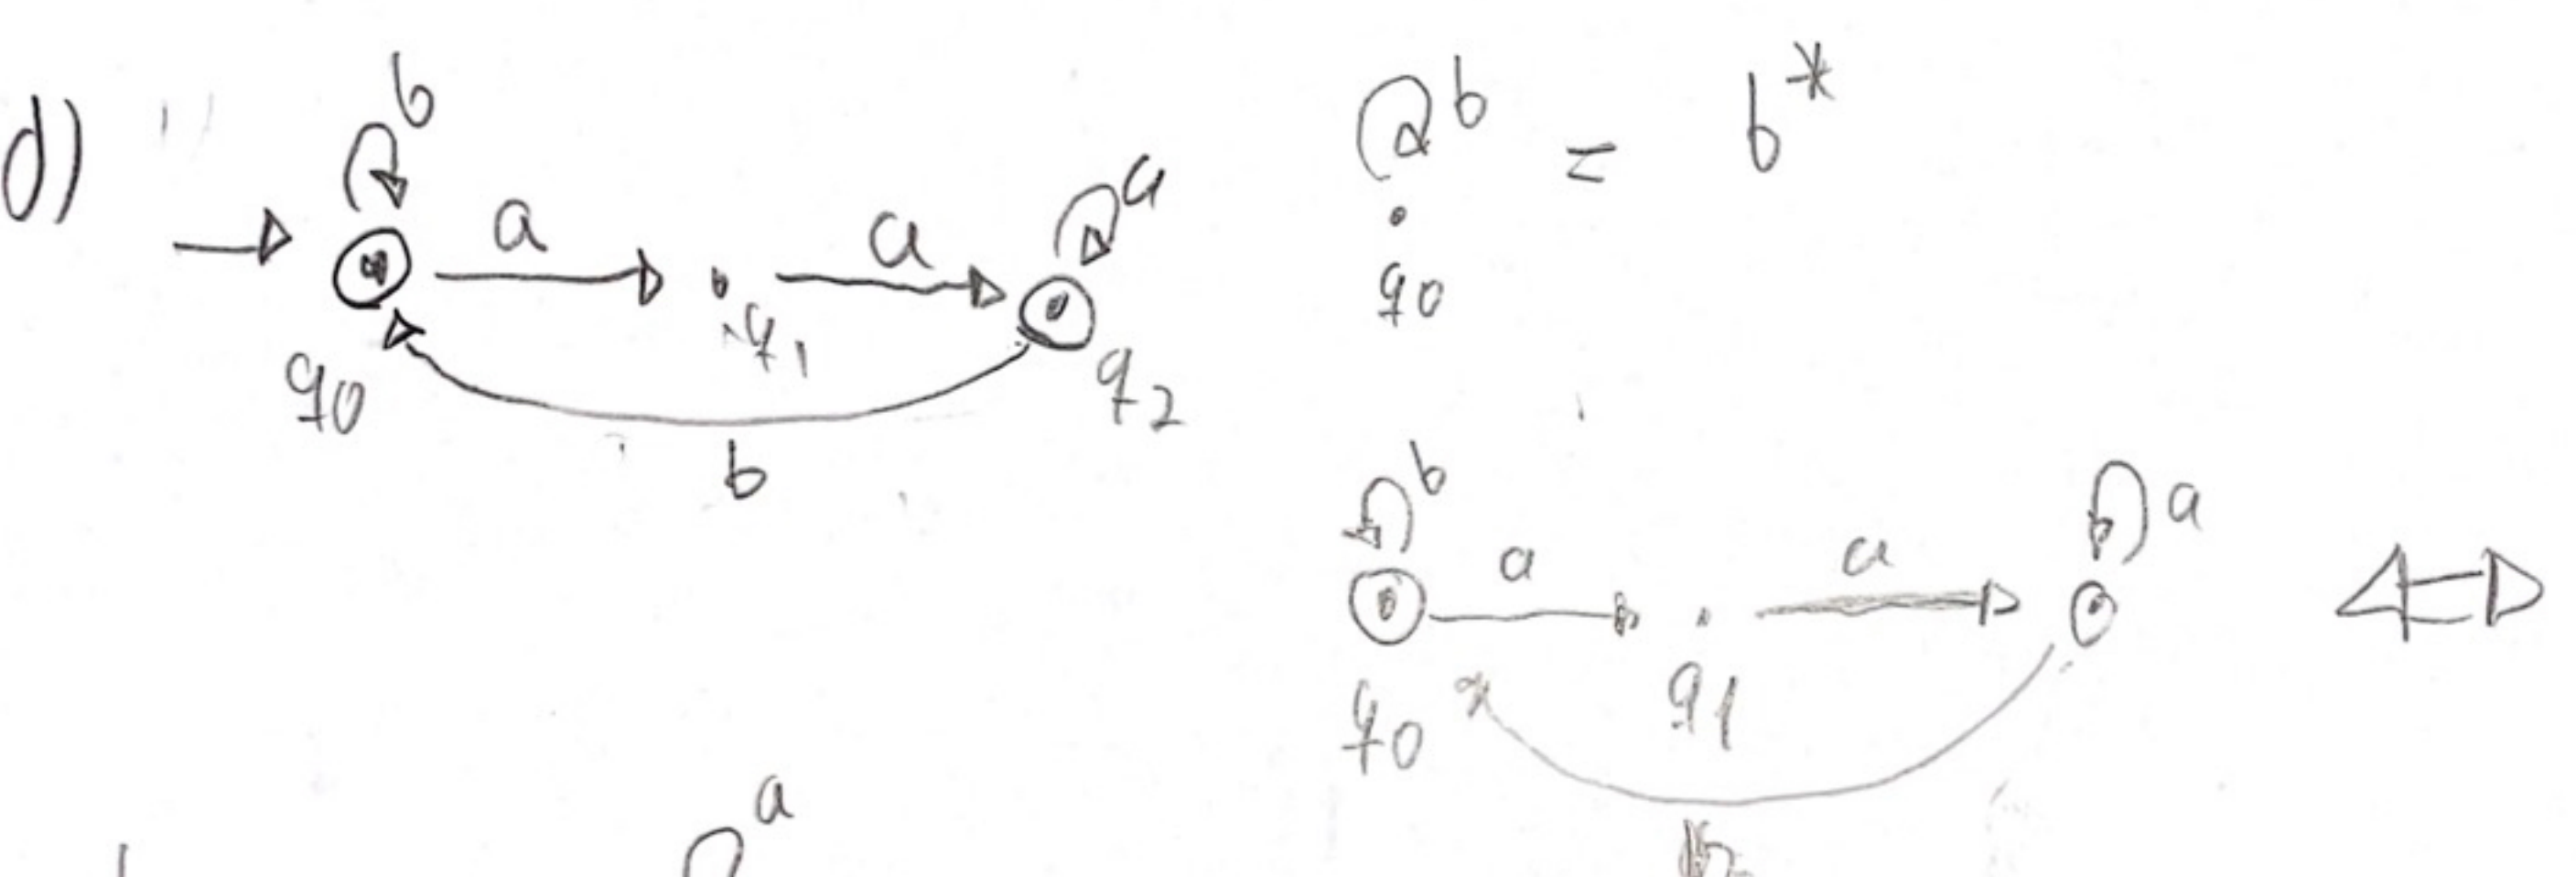 d)
b
a a a
q0 q1 q2
b
b = b*
q0
b a a a
q0 q1
b
a